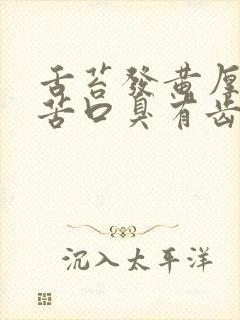 舌苔發黄厚
苦口臭有齿
沉入太平洋